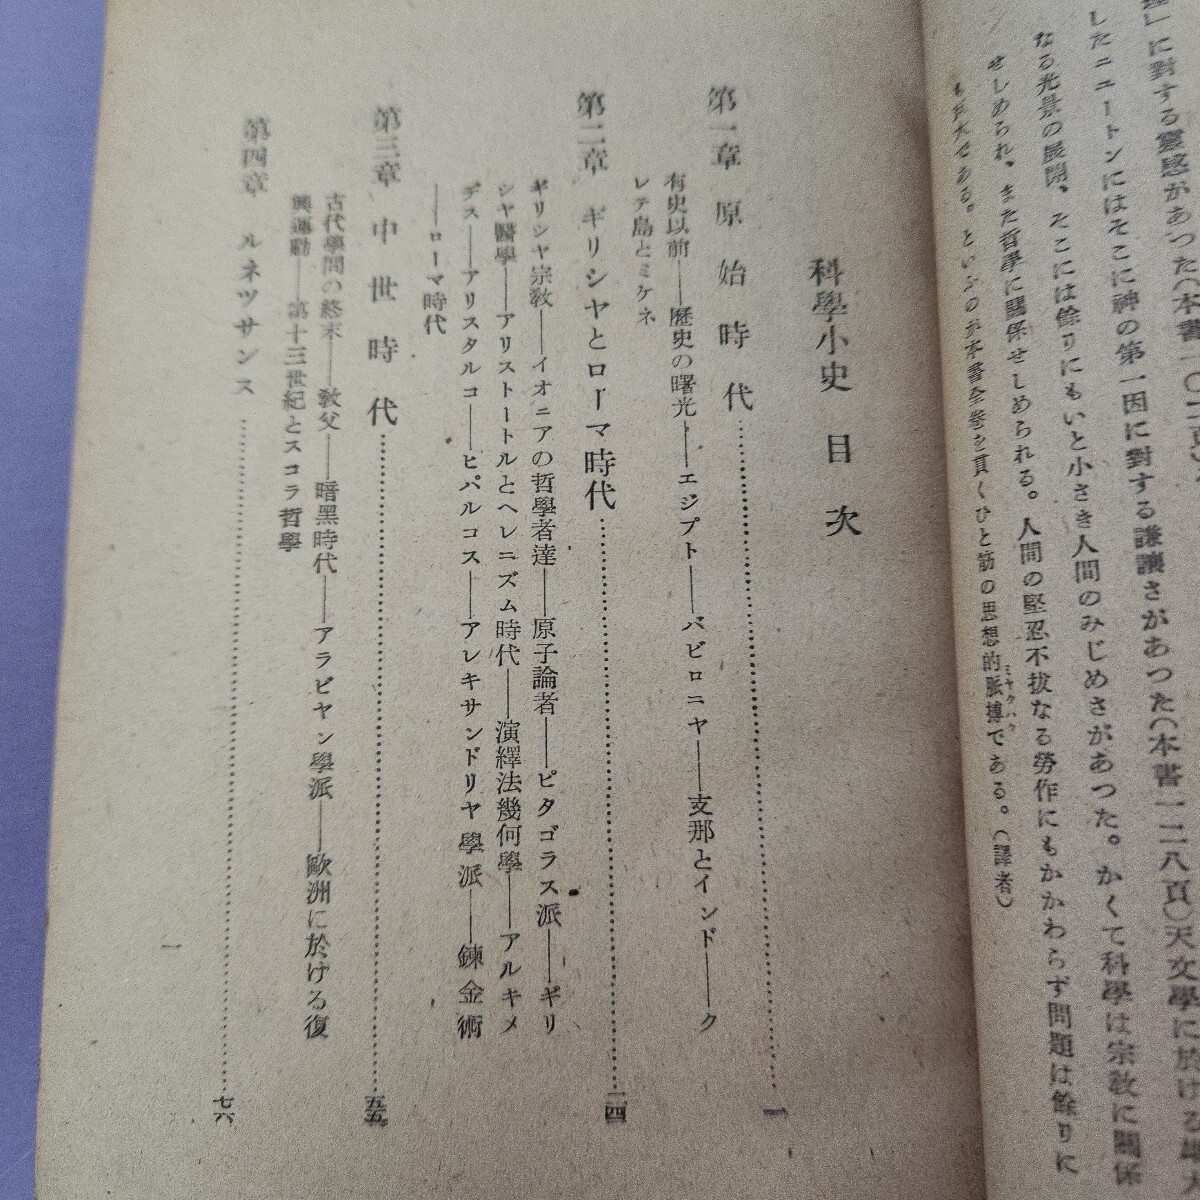 に對する靈感があつた(本書一〇二頁)
したニュートンにはそこに神の第一因に對する謙讓さがあつた(本書一二八頁)天文學に於ける
なる光景の展開、そこには餘りにもいと小さき人間のみじめさがあつた。かくて科學は宗教に關係
せしめられ、また哲學に關係せしめられる。人間の堅忍不拔なる勞作にもかかわらず問題は餘りに
である。といふのが本書全卷を貫くひと筋の思想的脈搏である。(譯者)
ミヤクハク
科學小史 目次
第一章 原始時代 一
有史以前――歷史の曙光――エジプト――バビロニヤ――支那とインド――ク
レテ島とミケネ
第二章 ギリシヤとローマ時代 二四
ギリシヤ宗教――イオニアの哲學者達――原子論者――ピタゴラス派――ギリ
シヤ醫學――アリストートルとヘレニズム時代――演繹法幾何學――アルキメ
デス――アリスタルコ――ヒパルコス――アレキサンドリヤ學派――鍊金術
――ローマ時代
第三章 中世時代 五五
古代學問の終末――敎父――暗黑時代――アラビヤン學派――歐洲に於ける復
興運動――第十三世紀とスコラ哲學
第四章 ルネツサンス 七六
一